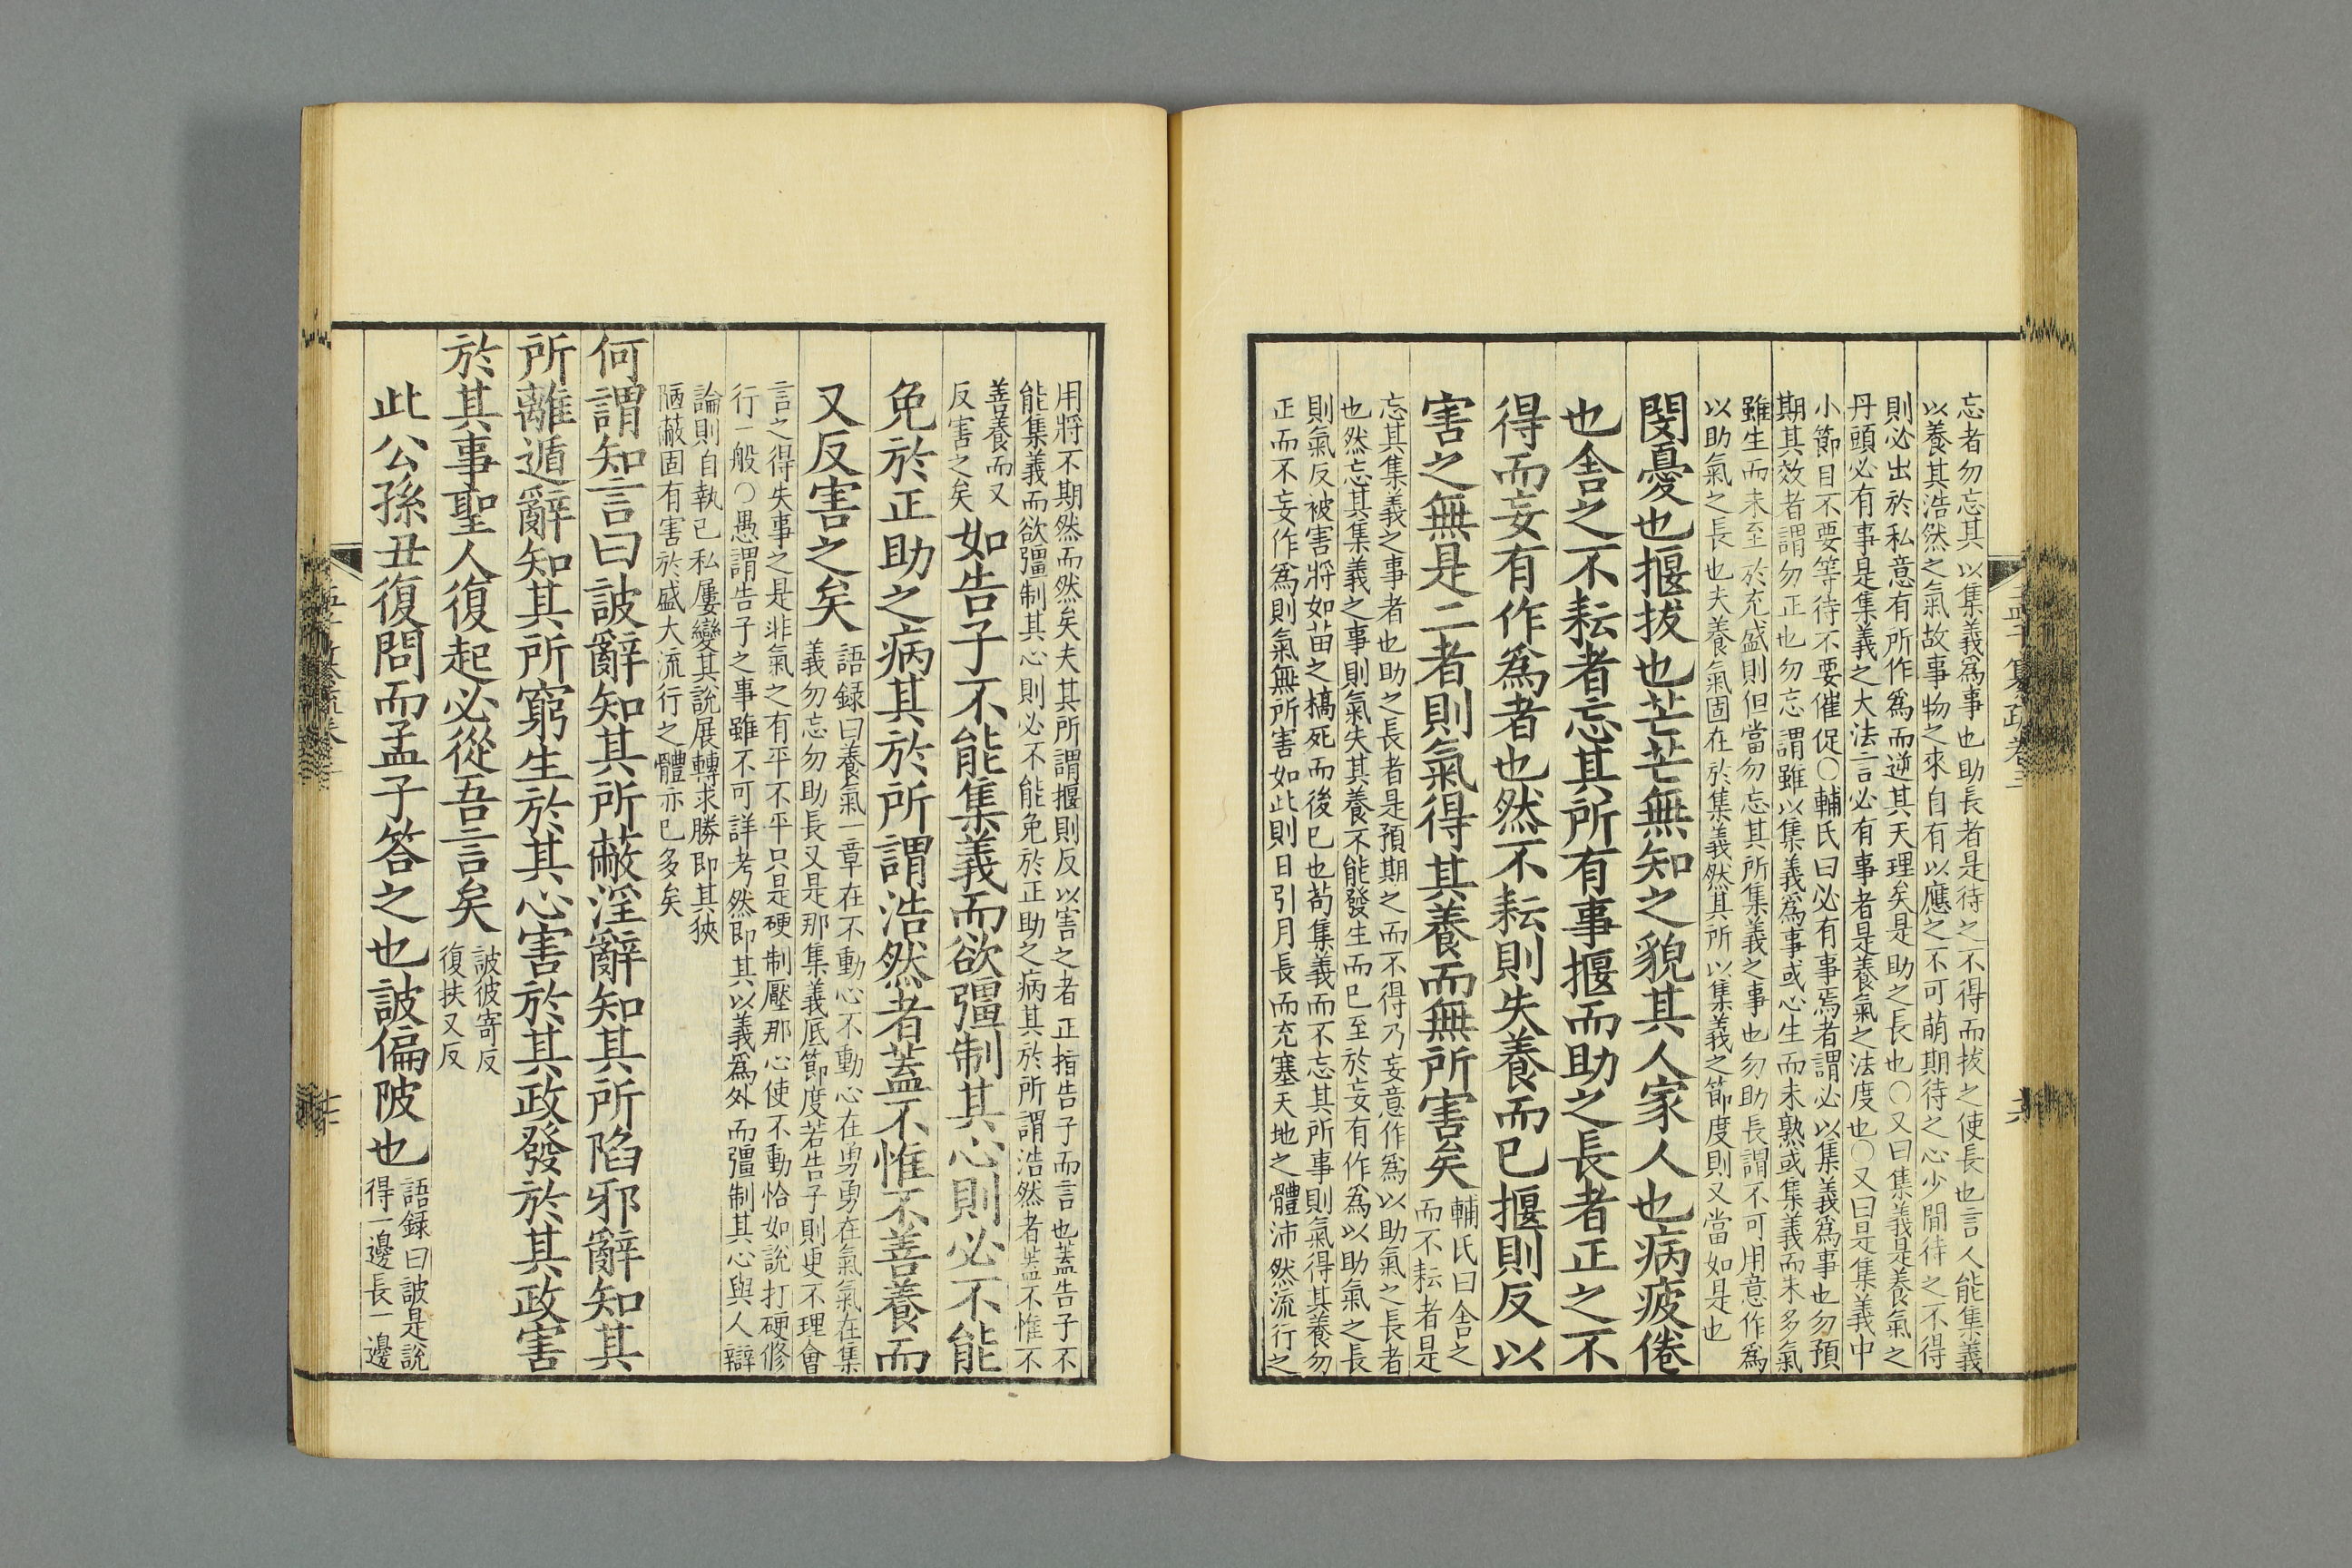 忘者勿忘其以集義爲事也助長者是待之不得而拔之使長也言人能集義
以養其浩然之氣故事物之來自有以應之不可萌期待之心少間待之不得
則必出於私意有所作爲而逆其天理矣是助之長也○又曰集義是養氣之
丹頭必有事是集義之大法言必有事者是養氣之法度也○又曰是集義中
小節目不要等待不要催促○輔氏曰必有事焉者謂必以集義爲事也勿預
期其效者謂勿正也勿忘謂雖以集義爲事或心生而未熟或集義而未多氣
雖生而未至於充盛則但當勿忘其所集義之事也勿助長謂不可用意作爲
以助氣之長也夫養氣固在於集義然其所以集義之節度則又當如是也
閔憂也揠拔也芒芒無知之貌其人家人也病疲倦
也舍之不耘者忘其所有事揠而助之長者正之不
得而妄有作爲者也然不耘則失養而已揠則反以
害之無是二者則氣得其養而無所害矣
輔氏曰舍之
而不耘者是
忘其集義之事者也助之長者是預期之而不得乃妄意作爲以助氣之長者
也然忘其集義之事則氣失其養不能發生而已至於妄有作爲以助氣之長
則氣反被害將如苗之槁死而後已也苟集義而不忘其所事則氣得其養勿
正而不妄作爲則氣無所害如此則日引月長而充塞天地之體沛然流行之
孟子纂疏卷三
用將不期然而然矣夫其所謂揠則反以害之者正指告子而言也蓋告子不
能集義而欲彊制其心則必不能免於正助之病其於所謂浩然者蓋不惟不
善養而又
反害之矣
如告子不能集義而欲彊制其心則必不能
免於正助之病其於所謂浩然者蓋不惟不善養而
又反害之矣
語録曰養氣一章在不動心不動心在勇勇在氣氣在集
義勿忘勿助長又是那集義底節度若告子則更不理會
言之得失事之是非氣之有平不平只是硬制壓那心使不動恰如說打硬修
行一般○愚謂告子之事雖不可詳考然即其以義爲外而彊制其心與人辯
論則自執已私屢變其說展轉求勝即其狹
陋蔽固有害於盛大流行之體亦已多矣
何謂知言曰詖辭知其所蔽淫辭知其所陷邪辭知其
所離遁辭知其所窮生於其心害於其政發於其政害
於其事聖人復起必從吾言矣
詖彼寄反
復扶又反
此公孫丑復問而孟子答之也詖偏陂也
語録曰詖是說
得一邊長一邊